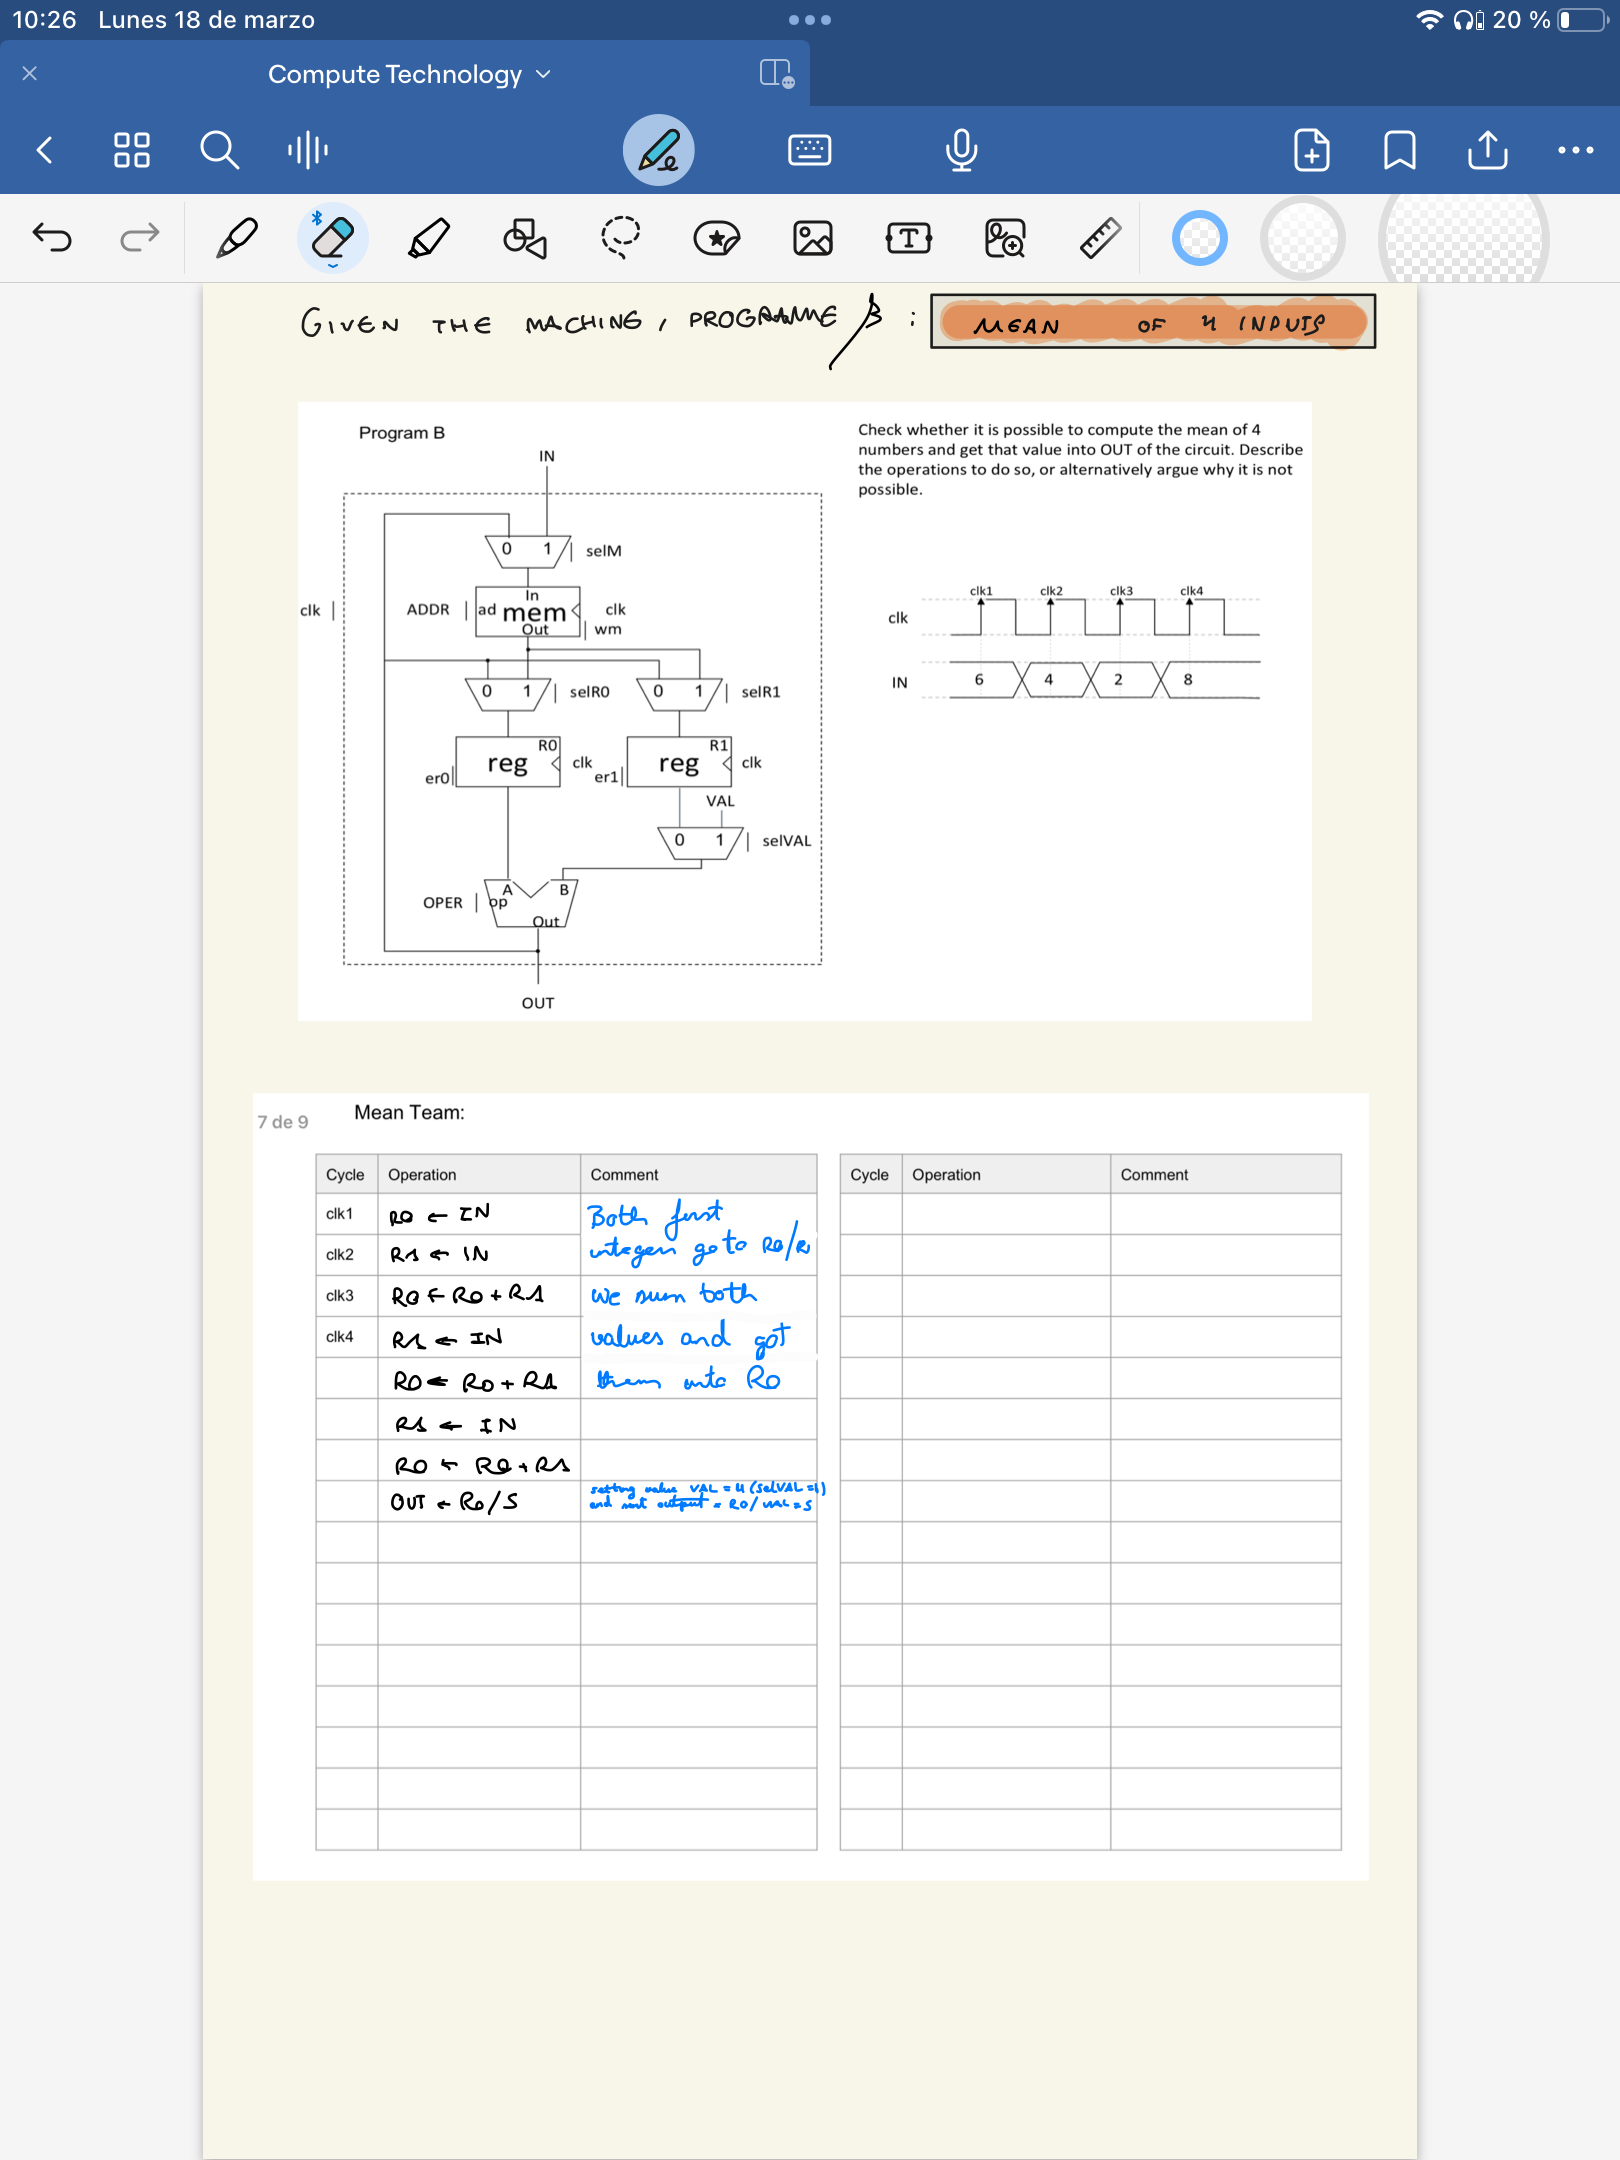 10:26 Lunes 18 de marzo 20 %
Compute Technology
GIVEN THE MACHING, PROGRAMME B : MEAN OF 4 INPUTS
Program B
IN
0 1 selM
In
clk ADDR ad mem clk
Out wm
0 1 selR0 0 1 selR1
R0 R1
reg clk reg clk
er0 er1
VAL
0 1 selVAL
A B
OPER op
Out
OUT
Check whether it is possible to compute the mean of 4
numbers and get that value into OUT of the circuit. Describe
the operations to do so, or alternatively argue why it is not
possible.
clk1 clk2 clk3 clk4
clk
IN 6 4 2 8
7 de 9
Mean Team:
Cycle Operation Comment Cycle Operation Comment
clk1 R0 ← IN Both first
clk2 R1 ← IN integers go to R0/R1
clk3 R0 ← R0 + R1 we sum both
clk4 R1 ← IN values and got
R0 ← R0 + R1 them into R0
R1 ← IN
R0 ← R0 + R1
setting value VAL = 4 (selVAL = 1)
OUT ← R0/5 and output = R0/VAL = 5